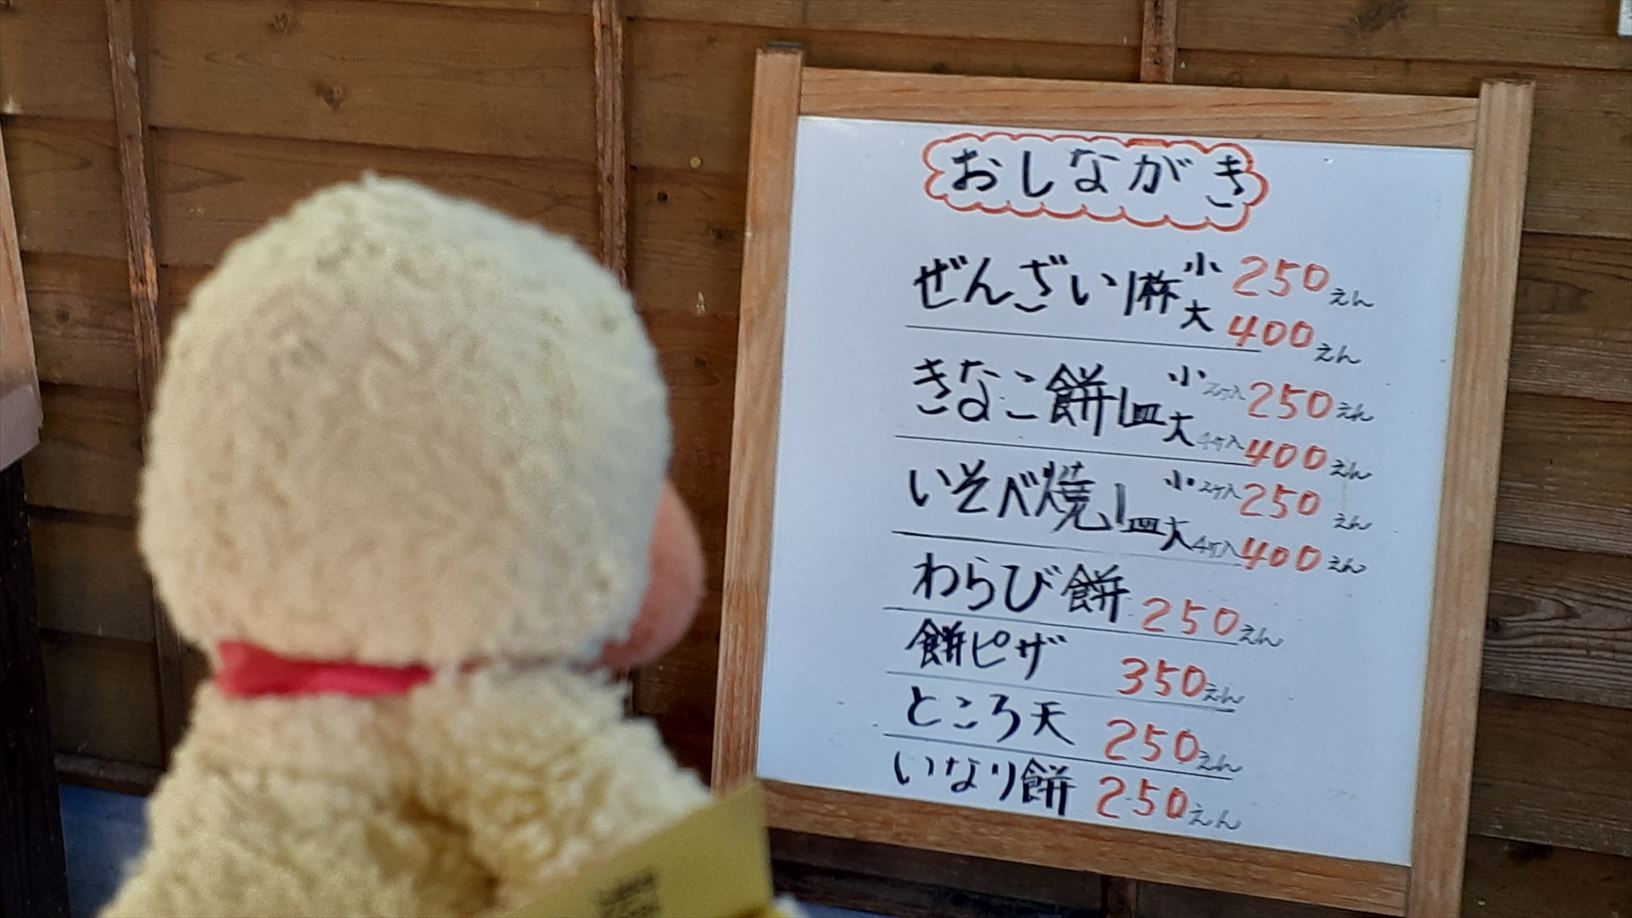 おしながき
ぜんざい1杯 小 250えん
大 400えん
きなこ餅1皿 小 2ケ入 250えん
大 4ケ入 400えん
いそべ焼1皿 小 2ケ入 250えん
大 4ケ入 400えん
わらび餅 250えん
餅ピザ 350えん
ところ天 250えん
いなり餅 250えん